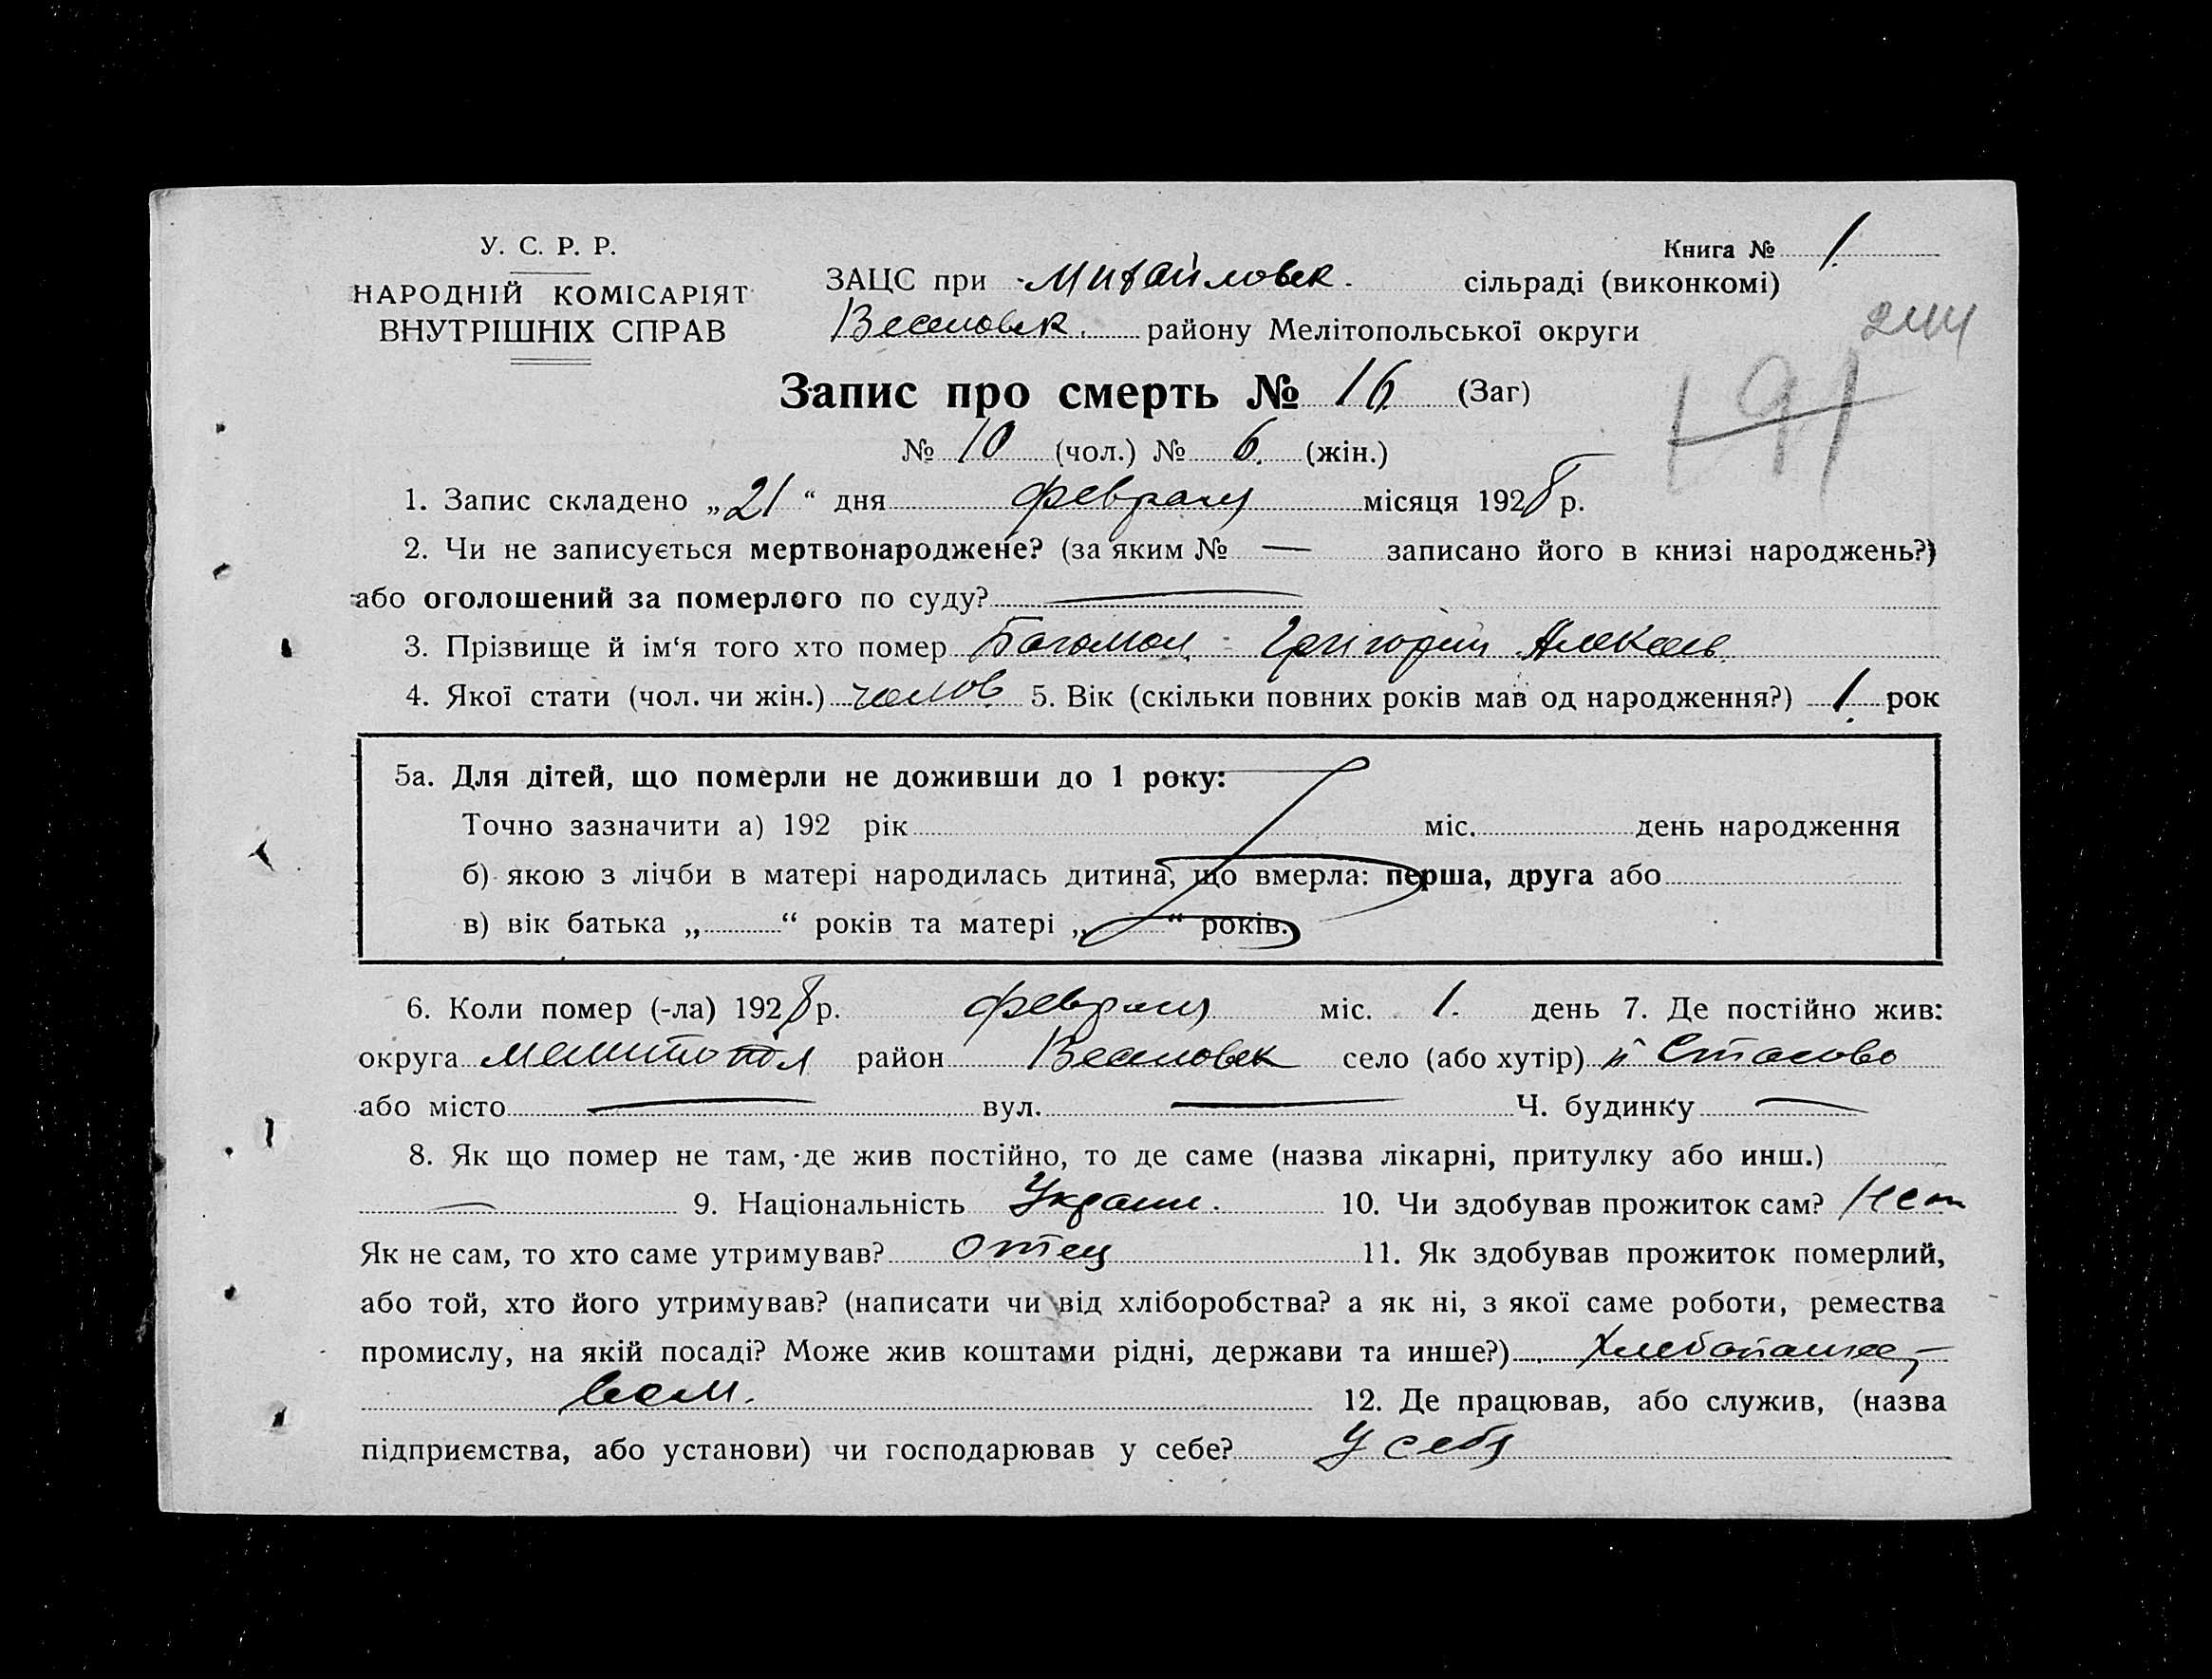 У. С. Р. Р.
НАРОДНІЙ КОМІСАРІЯТ
ВНУТРІШНІХ СПРАВ
Книга № 1.
ЗАЦС при Михайловск. сільраді (виконкомі)
Веселовск. району Мелітопольської округи
244
191
Запис про смерть № 16 (Заг)
№ 10 (чол.) № 6. (жін.)
1. Запис складено „21“ дня февраля місяця 1928 р.
2. Чи не записується мертвонароджене? (за яким № — записано його в книзі народжень?)
або оголошений за померлого по суду? —
3. Прізвище й ім‘я того хто помер Богомол Григорий Алексеев.
4. Якої стати (чол. чи жін.) челов. 5. Вік (скільки повних років мав од народження?) 1. рок
5а. Для дітей, що померли не доживши до 1 року:
Точно зазначити а) 192 рік міс. день народження
б) якою з лічби в матері народилась дитина, що вмерла: перша, друга або
в) вік батька „ “ років та матері „ “ років.
6. Коли помер (-ла) 1928 р. февраля міс. 1. день 7. Де постійно жив:
округа Мелитопол район Веселовск село (або хутір)
або місто — вул. — Ч. будинку —
8. Як що помер не там, де жив постійно, то де саме (назва лікарні, притулку або инш.)
— 9. Національність Украин. 10. Чи здобував прожиток сам? Нет
Як не сам, то хто саме утримував? Отец 11. Як здобував прожиток померлий,
або той, хто його утримував? (написати чи від хліборобства? а як ні, з якої саме роботи, ремества
промислу, на якій посаді? Може жив коштами рідні, держави та инше?) Хлебопашес-
вом. 12. Де працював, або служив, (назва
підприємства, або установи) чи господарював у себе? У себя